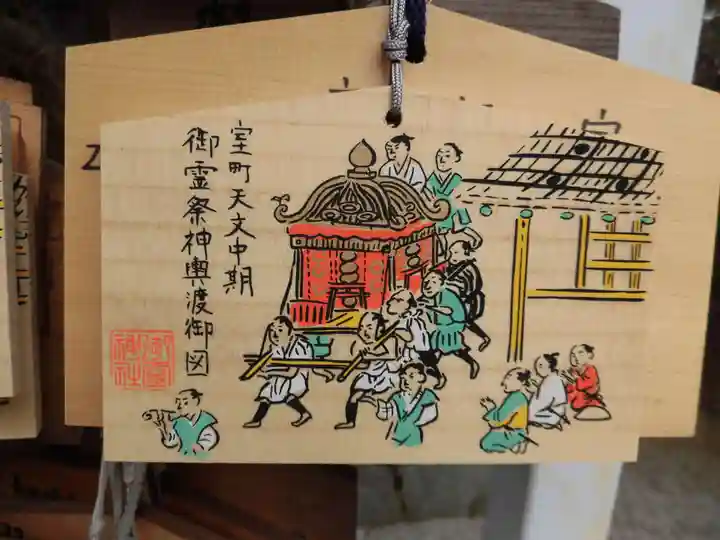 室町天文中期
御霊祭神輿渡御図
御霊
神社